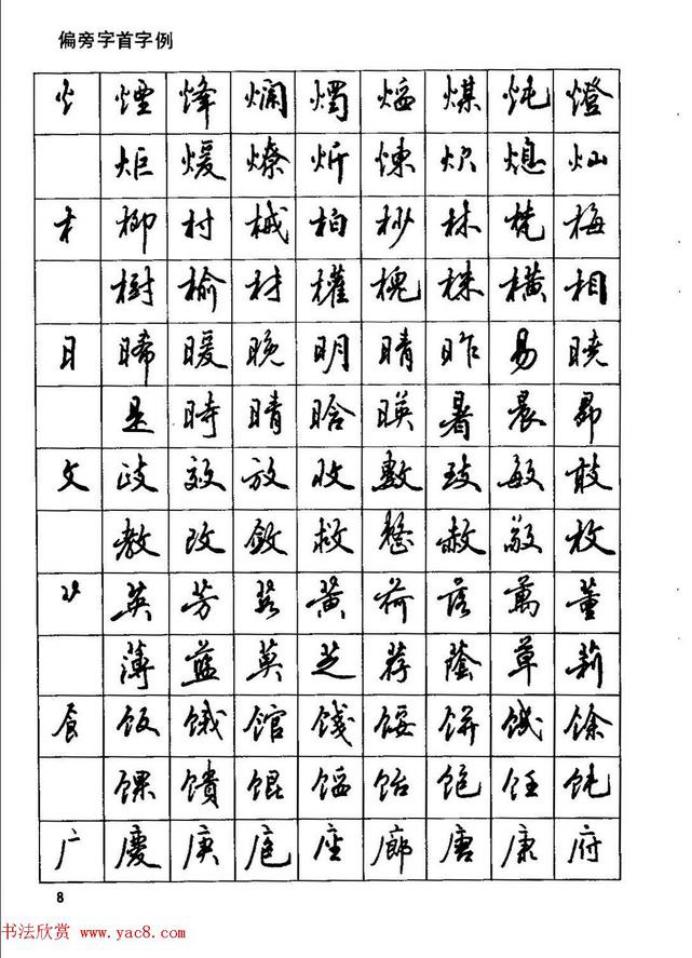 偏旁字首字例
火 煙 烽 爛 燭 煴 煤 炖 燈
炬 煖 燎 炘 煉 炽 熄 灿
木 柳 村 械 柏 杪 林 梵 梅
樹 榆 材 權 槐 株 橫 相
日 晞 暖 晚 明 晴 昨 易 曉
是 時 晴 晗 暎 暑 晨 昴
攵 歧 效 放 收 數 敏 敢
教 改 敛 救 整 赦 敬 枚
艹 英 芳 黃 荷 落 萬 董
薄 蓝 莫 芝 荐 蔭 草 莉
食 饭 饿 馆 饯 馁 饼 饑 馀
馃 馈 馄 饴 饱 饪 饨
广 慶 庚 庭 座 廊 唐 康 府
8
书法欣赏 www.yac8.com